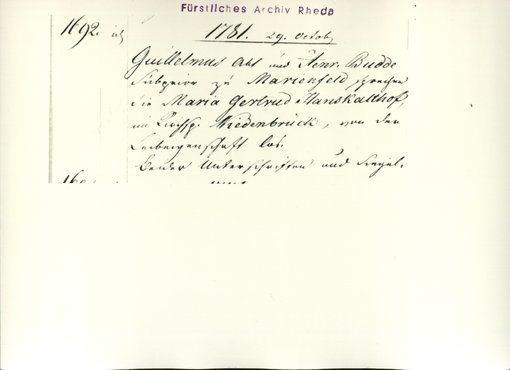 Fürstliches Archiv Rheda
1692. 1781. 29. Octob.
Guilhelmus Abt und Henr. Budde
Subprior zu Marienfeld sprechen
die Maria Gertrud Hanskallhof,
im Kirchsp. Wiedenbrück, von der
Leibeigenschaft los.
Beider Unterschriften und Siegel.